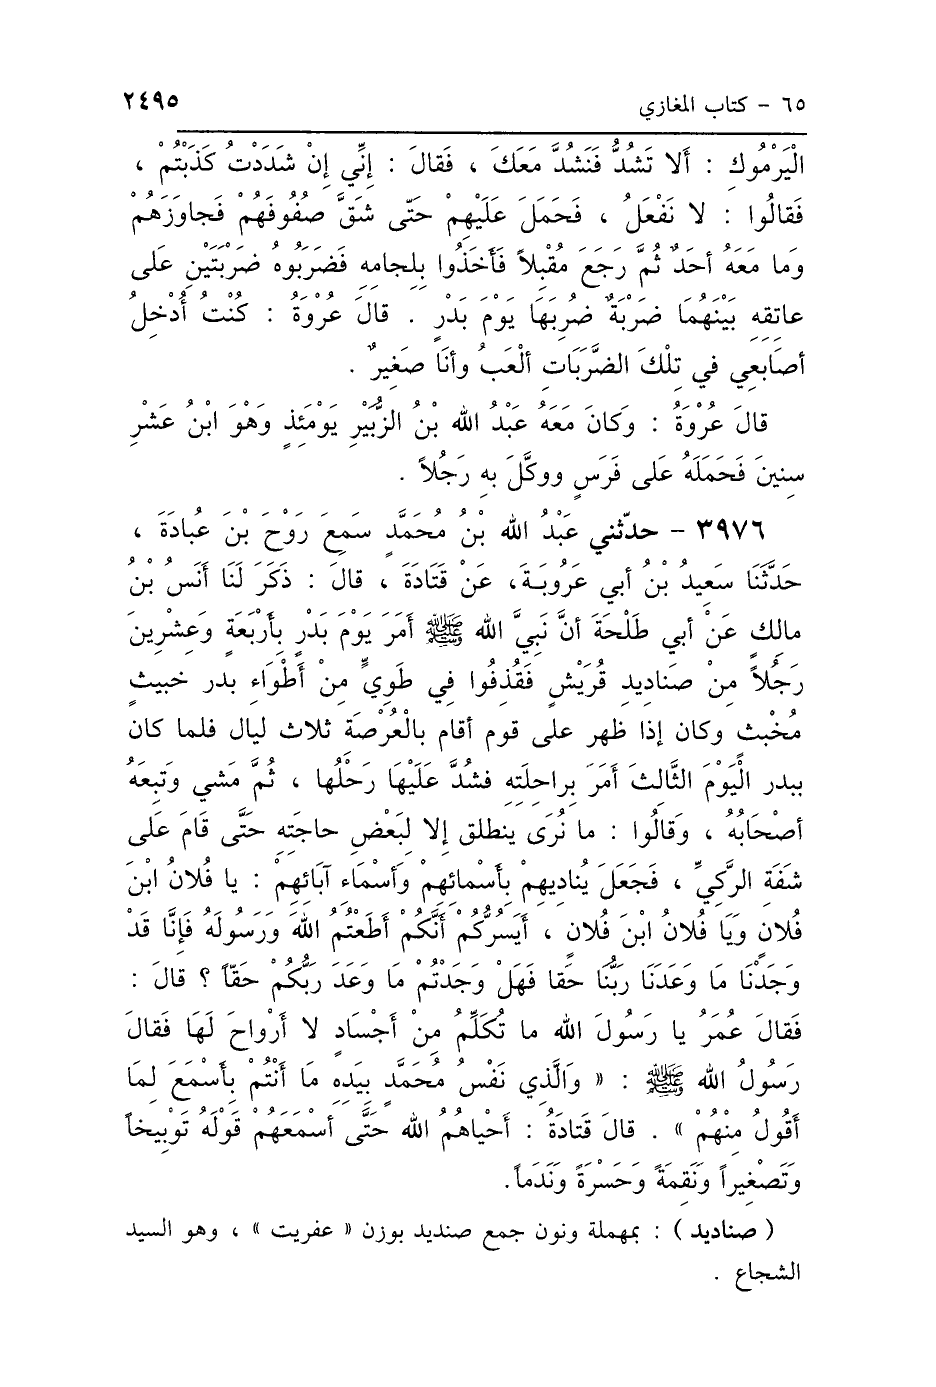 ٦٥ - كتاب المغازي ٢٤٩٥
الْيَرْمُوك : ألا تَشُدُّ فَنَشُدَّ مَعَكَ ، فَقالَ : إنِّي إنْ شَدَدْتُ كَذَبْتُمْ ،
فَقالُوا : لا نَفْعَلُ ، فَحَمَلَ عَلَيهِمْ حَتّى شَقَّ صفُوفَهُمْ فَجاوَزَهُمْ
وَما مَعَهُ أحَدٌ ثُمَّ رَجَعَ مقْبلاً فَأَخَذُوا بِلِجامِهِ فَضَرَبُوهُ ضَرْبَتَيْنِ على
عاتِقِهِ بَيْنَهُمَا ضَرْبَةٌ ضُرِبَهَا يَوْمَ بَدْرٍ . قالَ عُرْوَةُ : كنْتُ أُدْخِلُ
أصَابِعي في تِلْكَ الضَّرَبَاتِ ألْعَبُ وأنَا صَغِيرٌ .
قالَ عُرْوَةُ : وَكانَ مَعَهُ عَبْدُ الله بْنُ الزُّبَيْرِ يَوْمَئِذٍ وَهْوَ ابْنُ عَشْرِ
سِنِينَ فَحَمَلَهُ عَلى فَرَسٍ ووكَّلَ بِهِ رَجُلاً .
٣٩٧٦ - حدّثني عَبْدُ الله بْنُ مُحَمَّدٍ سَمِعَ رَوْحَ بْنَ عُبادَةَ ،
حَدَّثَنَا سَعِيدُ بْنُ أبي عَرُوبَـةَ، عَنْ قَتَادَةَ ، قالَ : ذَكَرَ لَنَا أَنَسُ بْنُ
مالِكٍ عَنْ أبي طَلْحَةَ أنَّ نَبِيَّ الله ﷺ أَمَرَ يَوْمَ بَدْرٍ بِأَرْبَعَةٍ وَعشْرِينَ
رَجُلاً مِنْ صَنادِيدِ قُرَيْشٍ فَقُذِفُوا فِي طَوِيٍّ مِنْ أَطْوَاءِ بدر خبيثٍ
مُخْبِثٍ وكان إذا ظهر على قوم أقام بالْعُرْصَةِ ثلاث ليال فلما كان
ببدر الْيَوْمَ الثَّالِثَ أمَرَ بِراحِلَتِهِ فشُدَّ عَلَيْهَا رَحْلُها ، ثُمَّ مَشي وَتبِعَهُ
أصْحَابُهُ ، وَقالُوا : ما نُرَى ينطلق إلا لِبَعْضِ حاجَتِهِ حَتَّى قَامَ عَلَى
شَفَةِ الرَّكِيِّ ، فَجَعَلَ يُنادِيهِمْ بِأَسْمائِهِمْ وَأسْمَاءِ آبَائِهِمْ : يا فُلانُ ابْنَ
فُلانٍ وَيَا فُلانُ ابْنَ فُلانٍ ، أَيَسُرُّكُمْ أَنَّكُمْ أَطَعْتُمُ اللهَ وَرَسُولَهُ فَإِنَّا قَدْ
وَجَدْنَا مَا وَعَدَنَا رَبُّنَا حَقا فَهَلْ وَجَدْتُمْ مَا وَعَدَ رَبُّكُمْ حَقّاً ؟ قالَ :
فَقالَ عُمَرُ يا رَسُولَ الله ما تُكَلِّمُ مِنْ أجْسَادٍ لا أَرْواحَ لَهَا فَقالَ
رَسُولُ الله ﷺ : « وَالَّذي نَفْسُ مُحَمَّدٍ بِيَدِهِ مَا أَنْتُمْ بِأَسْمَعَ لِمَا
أَقُولُ مِنْهُمْ » . قالَ قَتادَةُ : أَحْياهُمُ الله حَتَّى أسْمَعَهُمْ قَوْلَهُ تَوْبِيخاً
وَتَصْغِيراً وَنَقِمَةً وَحَسْرَةً وَنَدَماً.
( صناديد ) : بمهملة ونون جمع صنديد بوزن « عفريت » ، وهو السيد
الشجاع .